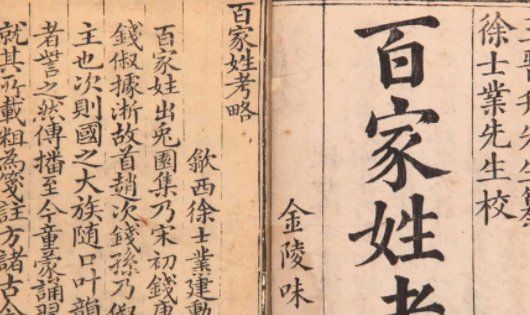 徐士業先生校
百家姓考
金陵味
百家姓考略
歙西徐士業建
百家姓出兔園集乃宋初錢
錢俶據浙故首趙次錢孫乃俶
主也次則國之大族随口叶韻
者訾之然傳播至今童蒙誦習
就其所載粗為箋註方諸古今